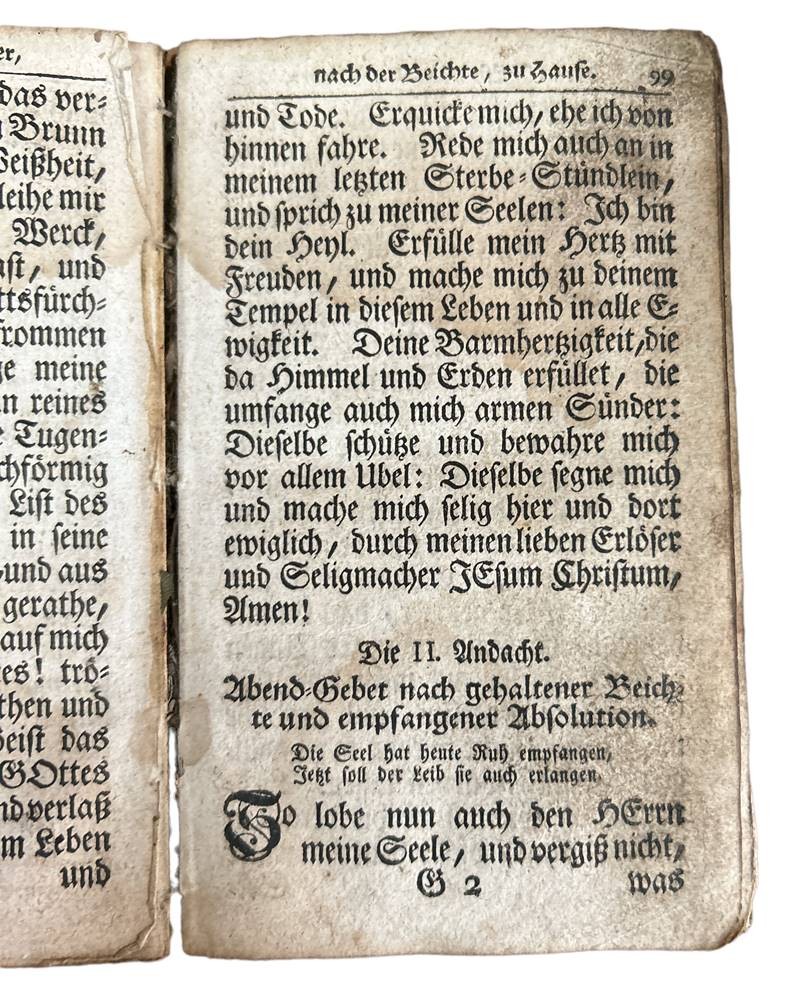 er,
das ver⸗
Brunn
Weißheit,
leihe mir
Werck,
und
ttsfürch⸗
frommen
ge meine
n reines
e Tugen⸗
chförmig
List des
in seine
und aus
gerathe,
auf mich
es! trö⸗
then und
Geist das
GOttes
nd verlaß
m Leben
und
nach der Beichte, zu Hause. 99
und Tode. Erquicke mich, ehe ich von
hinnen fahre. Rede mich auch an in
meinem letzten Sterbe⸗Stündlein,
und sprich zu meiner Seelen: Ich bin
dein Heyl. Erfülle mein Hertz mit
Freuden, und mache mich zu deinem
Tempel in diesem Leben und in alle E⸗
wigkeit. Deine Barmhertzigkeit, die
da Himmel und Erden erfüllet, die
umfange auch mich armen Sünder:
Dieselbe schütze und bewahre mich
vor allem Ubel: Dieselbe segne mich
und mache mich selig hier und dort
ewiglich, durch meinen lieben Erlöser
und Seligmacher JEsum Christum,
Amen!
Die II. Andacht.
Abend⸗Gebet nach gehaltener Beich⸗
te und empfangener Absolution.
Die Seel hat heute Ruh empfangen,
Jetzt soll der Leib sie auch erlangen.
So lobe nun auch den HErrn
meine Seele, und vergiß nicht,
G 2 was